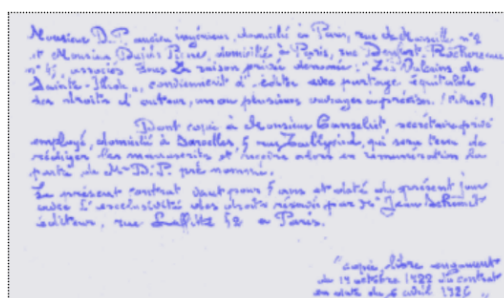 Monsieur D.P. ancien ingénieur, domicilié à Paris, rue de Marseille n°2
et Monsieur Dujols Pierre domicilié à Paris, rue Denfert-Rochereau
n° associés sous la raison privée dénommée: de
conviennent d'éditer avec partage équitable
des droits d'auteur, un ou plusieurs ouvrages
Dont copie à Monsieur Canseliet, secrétaire privé
employé, domicilié à Sarcelles, 5 rue qui sera tenu de
rédiger les manuscrits et alors en rémunération la
partie de Mr D.P. pré nommé.
Le présent contrat vaut pour 5 ans et daté du présent jour
avec l'exclusivité des droits par Mr Jean Schémit
éditeur, rue Laffitte 52 à Paris.
"copie libre argument
du 14 octobre 1922 du contrat
en date du 6 avril 1926"